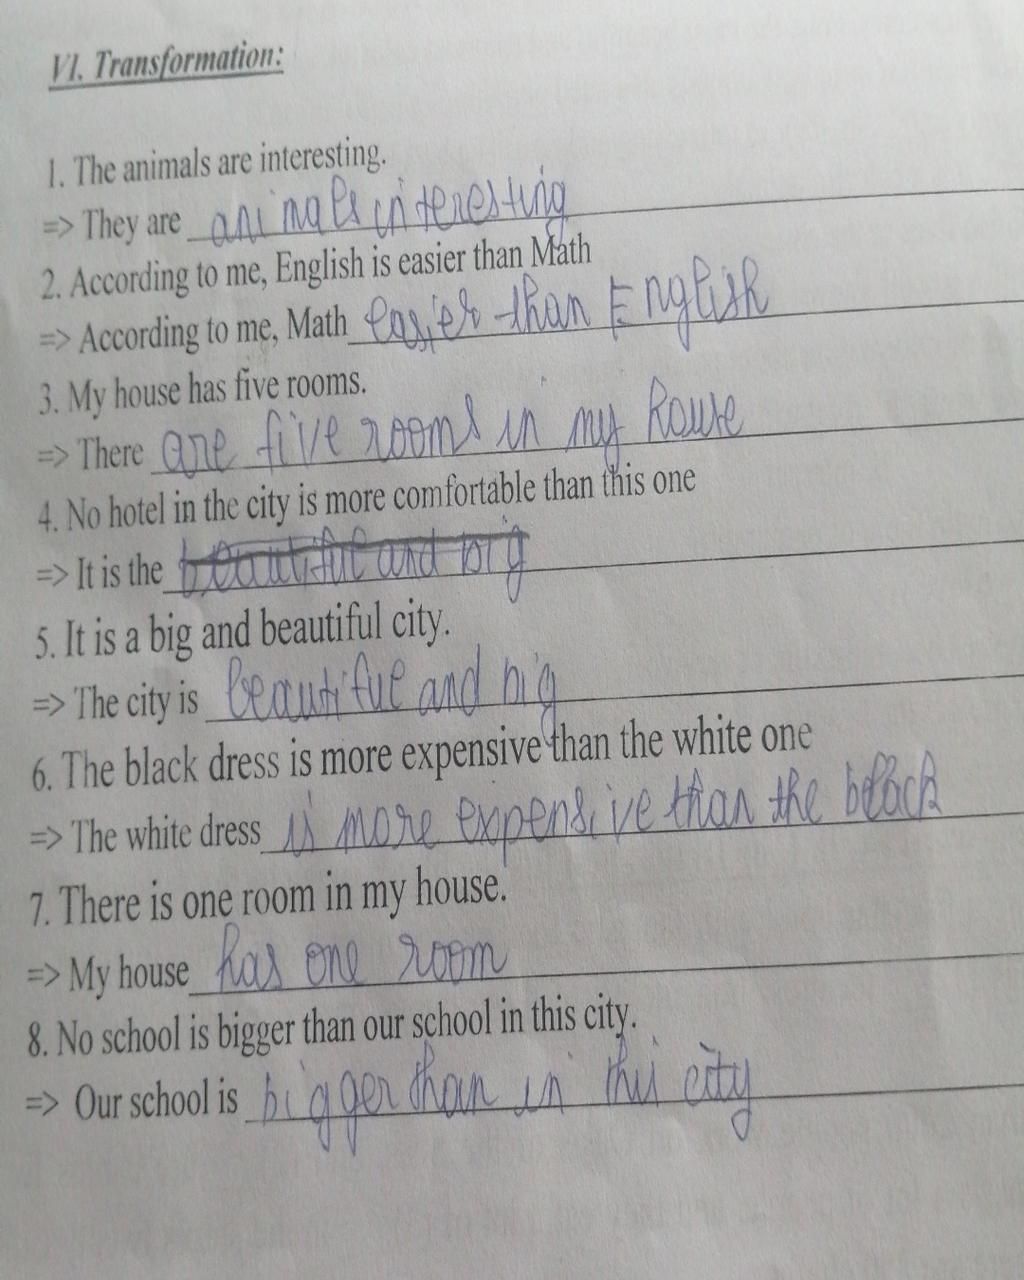 VI. Transformation:
1. The animals are interesting.
=> They are animals interesting
2. According to me, English is easier than Math
=> According to me, Math easier than English
3. My house has five rooms.
=> There are five rooms in my house
4. No hotel in the city is more comfortable than this one
=> It is the beautiful and big
5. It is a big and beautiful city.
=> The city is beautiful and big
6. The black dress is more expensive than the white one
=> The white dress is more expensive than the black
7. There is one room in my house.
=> My house has one room
8. No school is bigger than our school in this city.
=> Our school is bigger than in this city